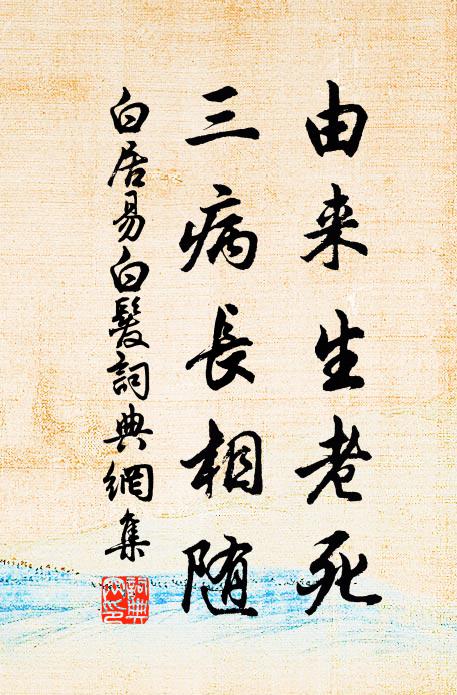 由来生老死
三病長相随
白居易白髮詞典網集